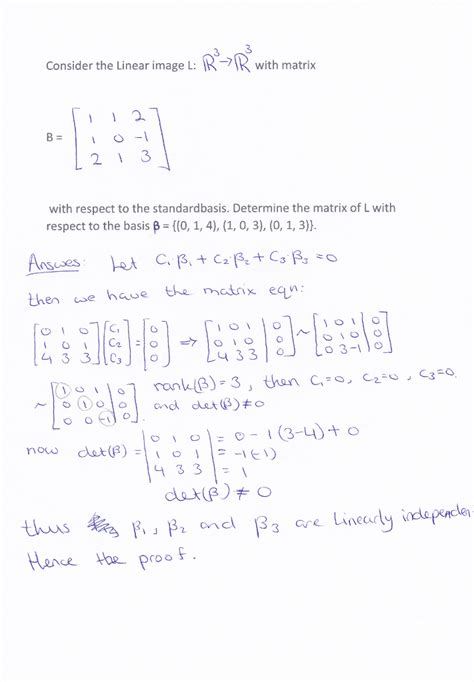 Consider the Linear image L: ℝ³→ℝ³ with matrix
B = [1 1 2
1 0 -1
2 1 3]
with respect to the standardbasis. Determine the matrix of L with
respect to the basis β = {(0, 1, 4), (1, 0, 3), (0, 1, 3)}.
Answer: Let C₁β₁ + C₂β₂ + C₃β₃ = 0
then we have the matrix eqn:
[0 1 0; 1 0 1; 4 3 3] [C₁; C₂; C₃] = [0; 0; 0] ⇒ [1 0 1 | 0; 0 1 0 | 0; 4 3 3 | 0] ~ [1 0 1 | 0; 0 1 0 | 0; 0 3 -1 | 0]
~ [1 0 1 | 0; 0 1 0 | 0; 0 0 -1 | 0] rank(β) = 3, then C₁=0, C₂=0, C₃=0.
and det(β) ≠ 0
now det(β) = |0 1 0; 1 0 1; 4 3 3| = 0 - 1(3-4) + 0
= -1(-1)
= 1
det(β) ≠ 0
thus β₁, β₂ and β₃ are Linearly independen
Hence the proof.